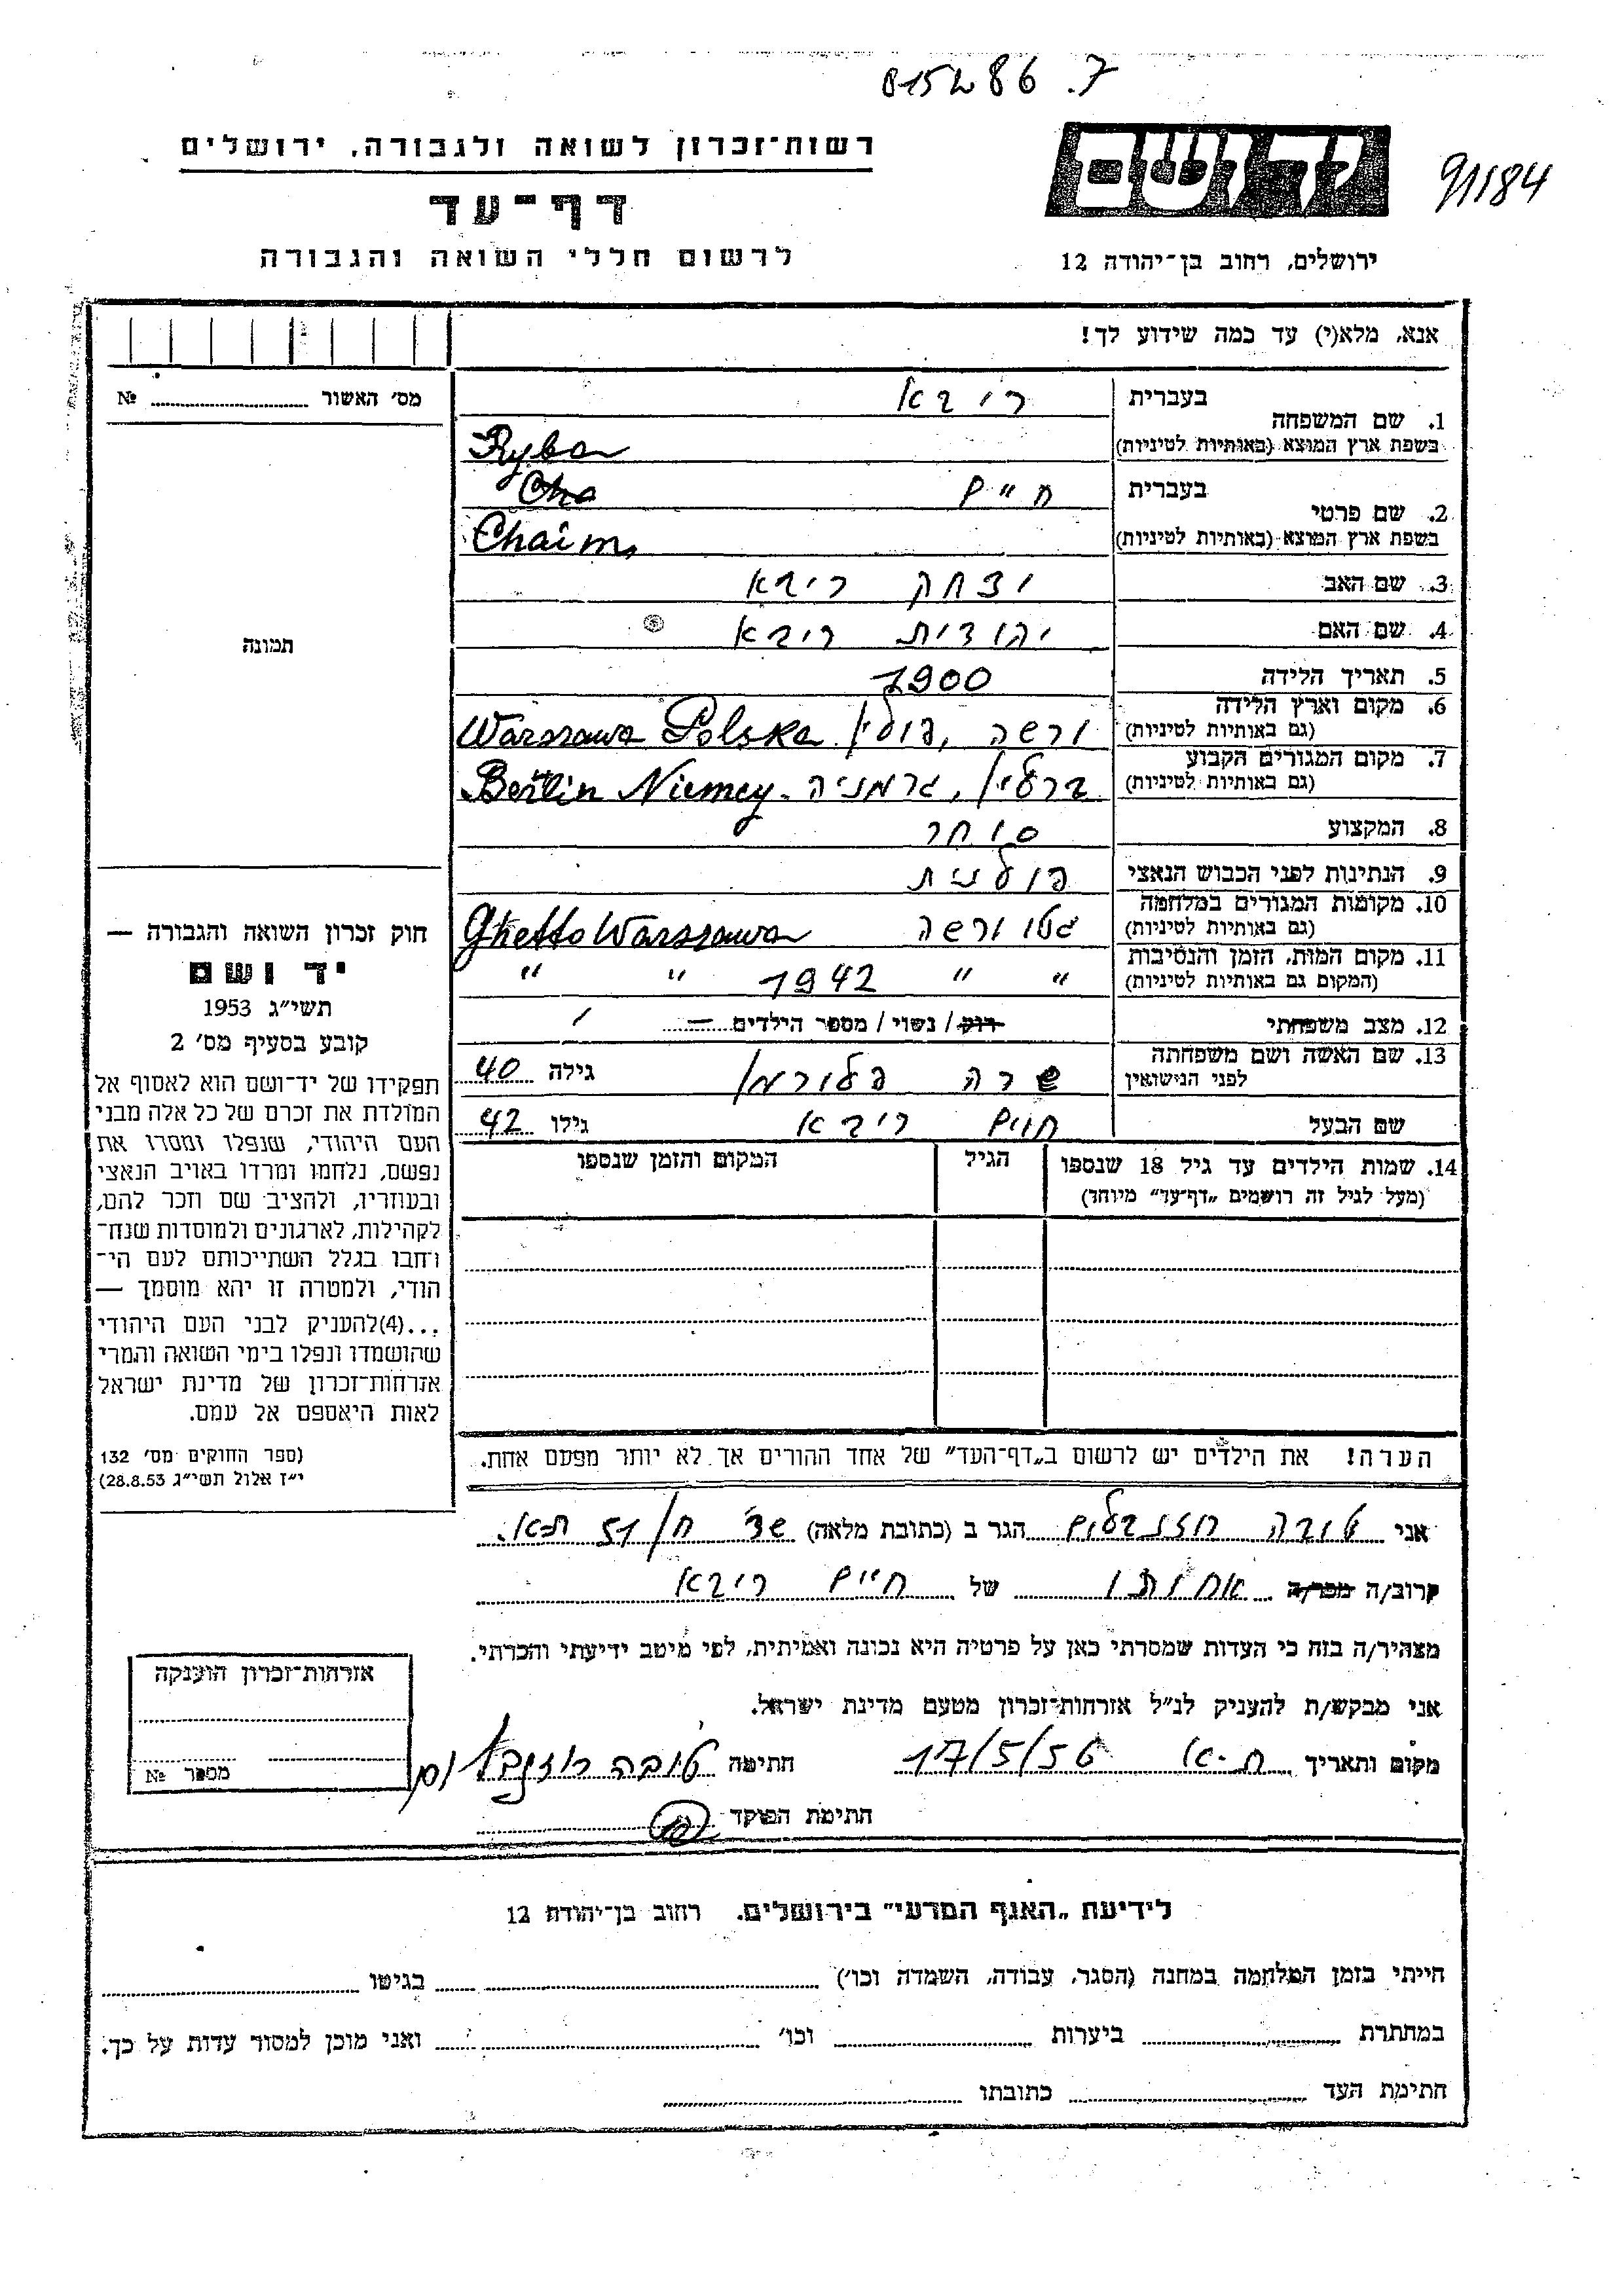 815286 .7
91184
יד ושם
ירושלים, רחוב בן־יהודה 12
רשות־זכרון לשואה ולגבורה, ירושלים
דף־עד
לרשום חללי השואה והגבורה
אנא, מלא(י) עד כמה שידוע לך!
1. שם המשפחה בעברית ריבא
בשפת ארץ המוצא (באותיות לטיניות) Ryba
2. שם פרטי בעברית חיים Cha
בשפת ארץ המוצא (באותיות לטיניות) Chaim
3. שם האב יצחק ריבא
4. שם האם יהודית ריבא
5. תאריך הלידה 1900
6. מקום וארץ הלידה ורשה, פולין Warszawa Polska
(גם באותיות לטיניות)
7. מקום המגורים הקבוע ברלין, גרמניה - Berlin Niemcy
(גם באותיות לטיניות)
8. המקצוע סוחר
9. הנתינות לפני הכבוש הנאצי פולנית
10. מקומות המגורים במלחמה גטו ורשה Ghetto Warszawa
(גם באותיות לטיניות)
11. מקום המות, הזמן והנסיבות " " 1942 " "
(המקום גם באותיות לטיניות)
12. מצב משפחתי רוק / נשוי / מספר הילדים —
13. שם האשה ושם משפחתה שרה גילה 40
לפני הנישואין
שם הבעל חיים ריבא גילו 42
14. שמות הילדים עד גיל 18 שנספו הגיל המקום והזמן שנספו
(מעל לגיל זה רושמים „דף־עד" מיוחד)
הערה! את הילדים יש לרשום ב„דף־העד" של אחד ההורים אך לא יותר מפעם אחת.
מס׳ האשור №
תמונה
חוק זכרון השואה והגבורה —
יד ושם
תשי״ג 1953
קובע בסעיף מס׳ 2
תפקידו של יד־ושם הוא לאסוף אל
המולדת את זכרם של כל אלה מבני
העם היהודי, שנפלו ומסרו את
נפשם, נלחמו ומרדו באויב הנאצי
ובעוזריו, ולהציב שם וזכר להם,
לקהילות, לארגונים ולמוסדות שנח־
רחבו בגלל השתייכותם לעם הי־
הודי, ולמטרה זו יהא מוסמך —
...(4)להעניק לבני העם היהודי
שהושמדו ונפלו בימי השואה והמרי
אזרחות־זכרון של מדינת ישראל
לאות היאספם אל עמם.
(ספר החוקים מס׳ 132
י״ז אלול תשי״ג 28.8.53)
אני טובה הגר ב (כתובת מלאה) 51 ת-א.
קרוב/ה מכר/ה אחותו של חיים ריבא
מצהיר/ה בזה כי העדות שמסרתי כאן על פרטיה היא נכונה ואמיתית, לפי מיטב ידיעתי והכרתי.
אני מבקש/ת להעניק לנ״ל אזרחות־זכרון מטעם מדינת ישראל.
מקום ותאריך ת-א 17/5/56 חתימה טובה
חתימת הפוקד
אזרחות־זכרון הוענקה
מספר №
לידיעת „האגף המדעי" בירושלים, רחוב בן־יהודה 12
הייתי בזמן המלחמה במחנה (הסגר, עבודה, השמדה וכו׳) בגיטו
במחתרת ביערות וכו׳ ואני מוכן למסור עדות על כך.
חתימת העד כתובתו